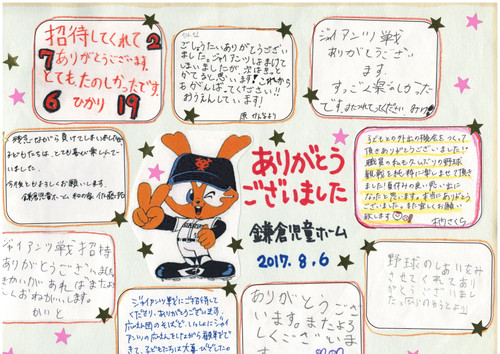 招待してくれて
ありがとうございます。
とてもたのしかったです。
ひかり
2
7
6
19
ごしょうたいありがとうござい
ました。ジャイアンツはまけて
しまいましたが、次は きっと
かてると思います! これから
もがんばってください!!
おうえんしています!
ジャイアンツ戦
ありがとうござい
ます。
すっごく楽しかった
です。またつれてってください
残念ながら負けてしまいましたが
子どもたちは、とても喜んで
いました。
今後ともよろしくお願いします。
鎌倉児童ホーム
ありがとう
ございました
鎌倉児童ホーム
2017.8.6
子どもとの外出の機会をつくって
頂きありがとうございました!
職員の私も久しぶりの野球
観戦を純粋に楽しませて頂き
ました!夏休みの良い思い出に
なったと思います。本当にありがとう
ございました。また宜しくお願い
致します
木内さくら
ジャイアンツ戦 招待
ありがとうございました。
きかいが あれば またよろ
しくおねがいします。
かいと
ジャイアンツ戦にご招待して
くださり、ありがとうございます。
応えん団のそばで、いっしょにジャイ
アンツの応えんをしながら観戦
できて、子どもたちは大喜びでした。
ありがとうござ
います。またよろ
しくございま
野球のしあいをみ
させてくれてあり
がとうございまし